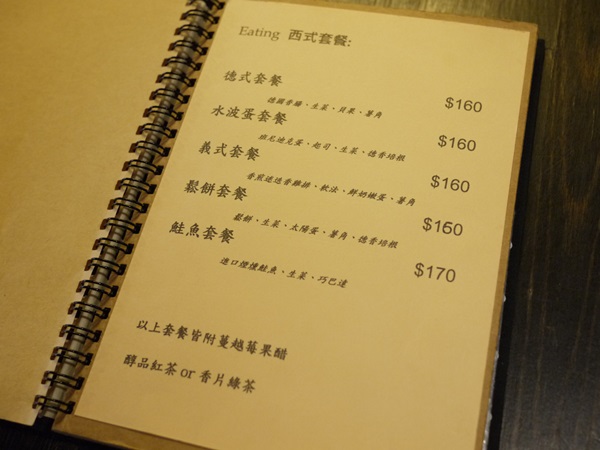 Eating 西式套餐:
德式套餐 $160
德國香腸、生菜、貝果、薯角
水波蛋套餐 $160
班尼迪克蛋、起司、生菜、德香培根
義式套餐 $160
香煎迷迭香雞排、軟法、鮮奶嫩蛋、薯角
鬆餅套餐 $160
鬆餅、生菜、太陽蛋、薯角、德香培根
鮭魚套餐 $170
進口煙燻鮭魚、生菜、巧巴達
以上套餐皆附蔓越莓果醋
醇品紅茶 or 香片綠茶